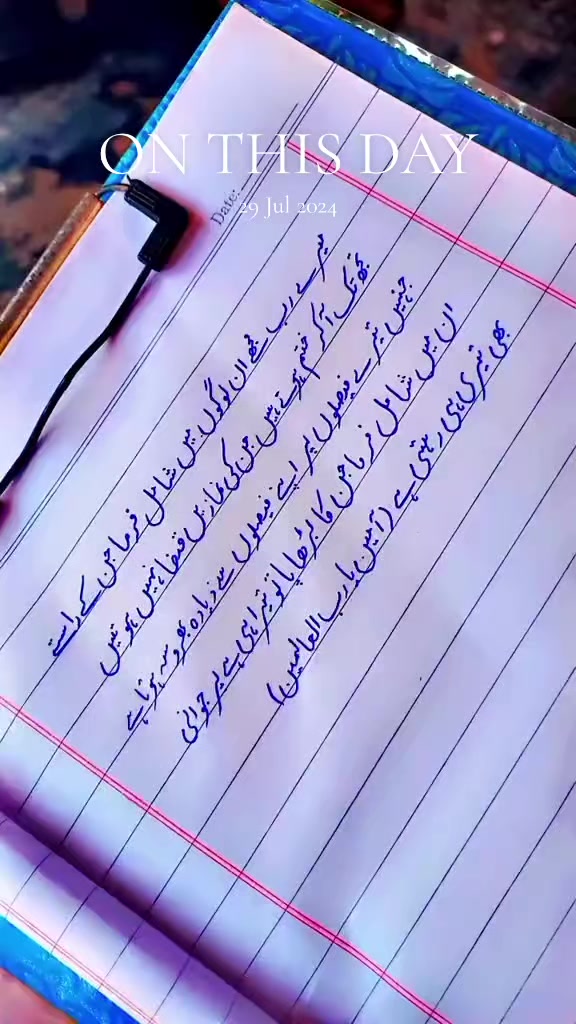 ON THIS DAY
29 Jul 2024
Date:
میرے رب مجھے ان لوگوں میں شامل فرما جن کے راستے
تجھ تک آ کر ختم ہوتے ہیں جن کی نمازیں قضا نہیں ہوتیں
جنہیں تیرے فیصلوں پر اپنے فیصلوں سے زیادہ بھروسہ ہوتا ہے
ان میں شامل فرما جن کا بڑھاپا تو تیرا ہی ہے پر جوانی
بھی تیری ہی رہتی ہے (آمین یا رب العالمین)